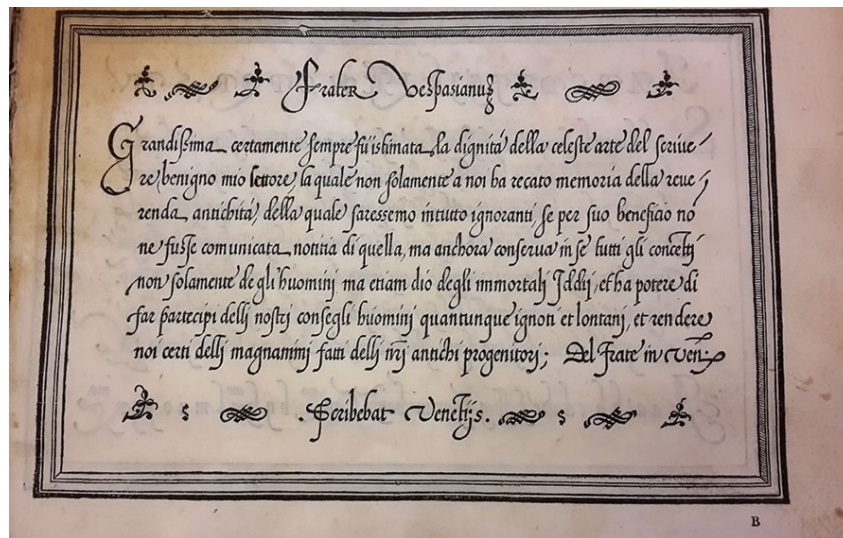 Frater Vespasianus
Grandissima certamente sempre fù istimata la dignità della celeste arte del scriue/
re, benigno mio lettore, la quale non solamente a noi ha recato memoria della reue/
renda antichità, della quale saressemo in tutto ignoranti, se per suo beneficio nō
ne fusse comunicata notitia di quella, ma anchora conserua in se tutti gli concetti
non solamente de gli huomini ma etiam dio degli immortali Iddij, et ha potere di
far partecipi delli nostri consegli huomini quantunque ignoti et lontani, et rendere
noi certi delli magnanimi fatti delli nr̃i antichi progenitori; Del Frate in Ven:
.Scribebat Venetijs.
B